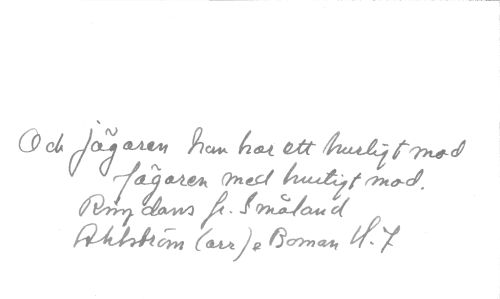 Och jägaren han har ett hurtigt mod
Jägaren med hurtigt mod.
Ringdans fr. Småland
Ahlström (arr) e Boman H. 7